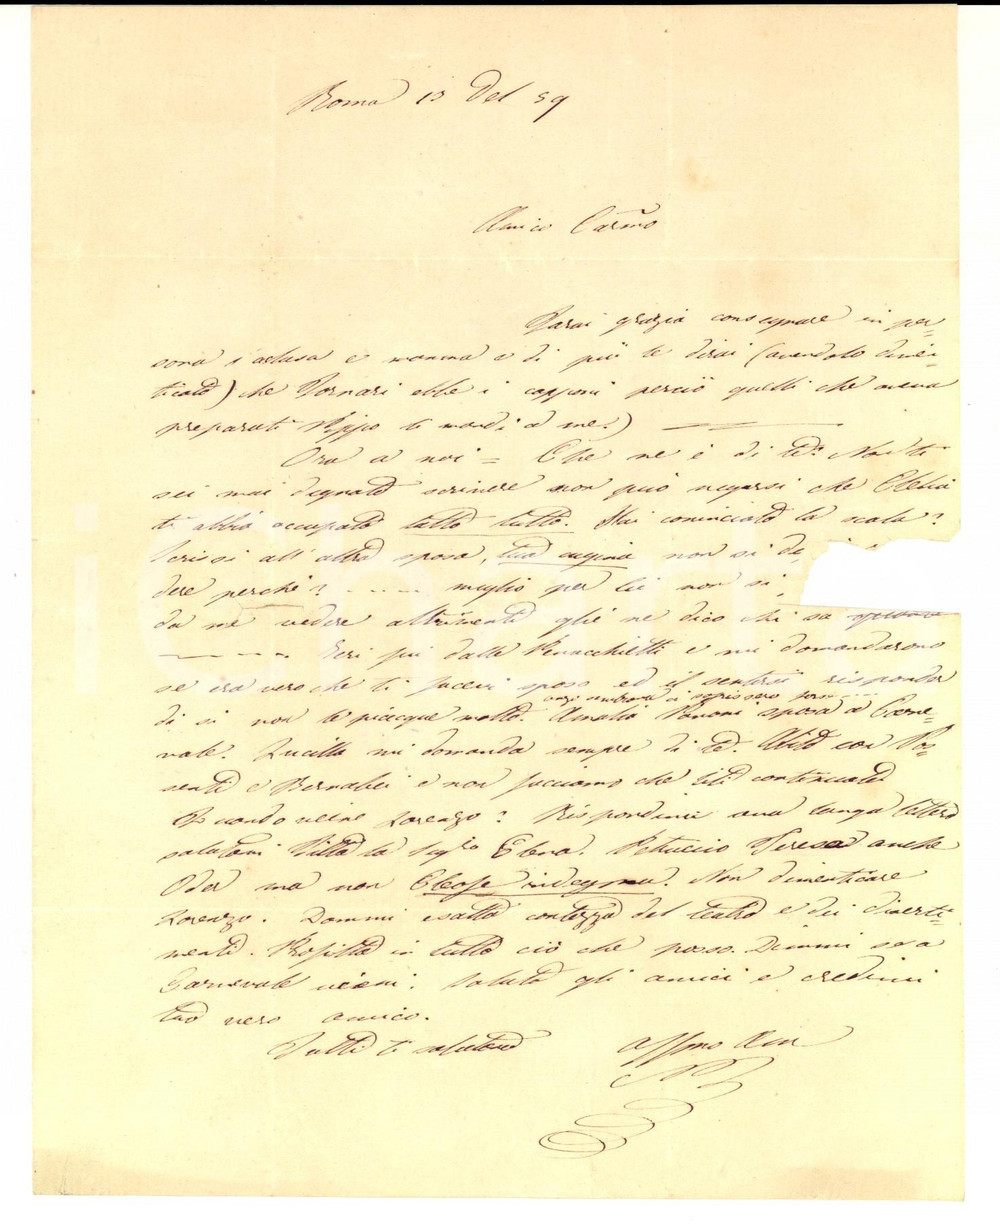 Roma 13 Del 59
Amico Carmo
Farai grazia consegnare in per=
sona l'aclusa a mamma e di più le dirai (avendolo dimen=
ticato) che Fornari ebbe i capponi perciò quelli che aveva
preparati Pippo li mandi a me.)
Ora a noi = Che ne è di te? Non ti
sei mai degnato scrivere non può negarsi che Clelia
ti abbia occupato tutto tutto. Hai cominciato la scala?
Scrissi all'altra sposa, tua cugina non si de
dere perchè? ..... meglio per lei non si
da me vedere altrimenti glie ne dico chi sa
..... Ieri fui dalle Penacchietti e mi domandarono
se era vero che ti facevi sposo ed il sentirsi risponder
di si non le piacque molto.
Amalia sposa a Carne=
vale. Lucilla mi domanda sempre di te. con Po=
senti e Bernabei e non facciamo che
Quando viene Lorenzo? Rispondimi una lunga lettera
salutami la Sigra Elena. Petruccio Teresa anche
Oder ma non indegna. Non dimenticare
Lorenzo. Dammi esatta contezza del teatro e dei diverti=
menti. Profitta in tutto ciò che posso. Dimmi se a
Carnevale vieni. Saluta gli amici e credimi
tuo vero amico.
Tutti ti salutano
Affmo Am